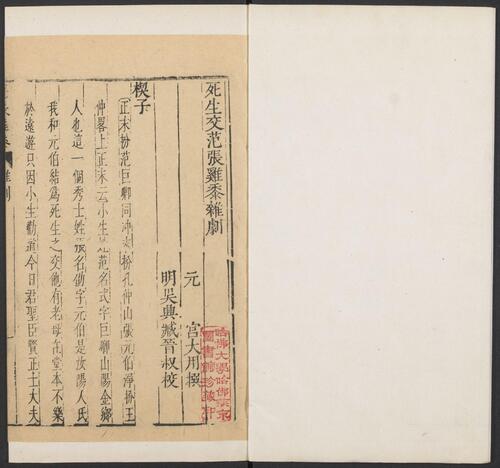 死生交范張雞黍雜劇
元 宮大用撰
明吳興臧晉叔校
楔子
正末扮范巨卿同冲末扮孔仲山張元伯淨扮王
仲畧上正末云小生姓范名式字巨卿山陽金鄉
人也這一個秀士姓張名劭字元伯是汝陽人氏
我和元伯結爲死生之交他有老母在堂本不樂
於遠遊只因小生勸道今日君聖臣賢正士大夫
雜劇
哈佛大學哈佛燕京
圖書館珍藏印